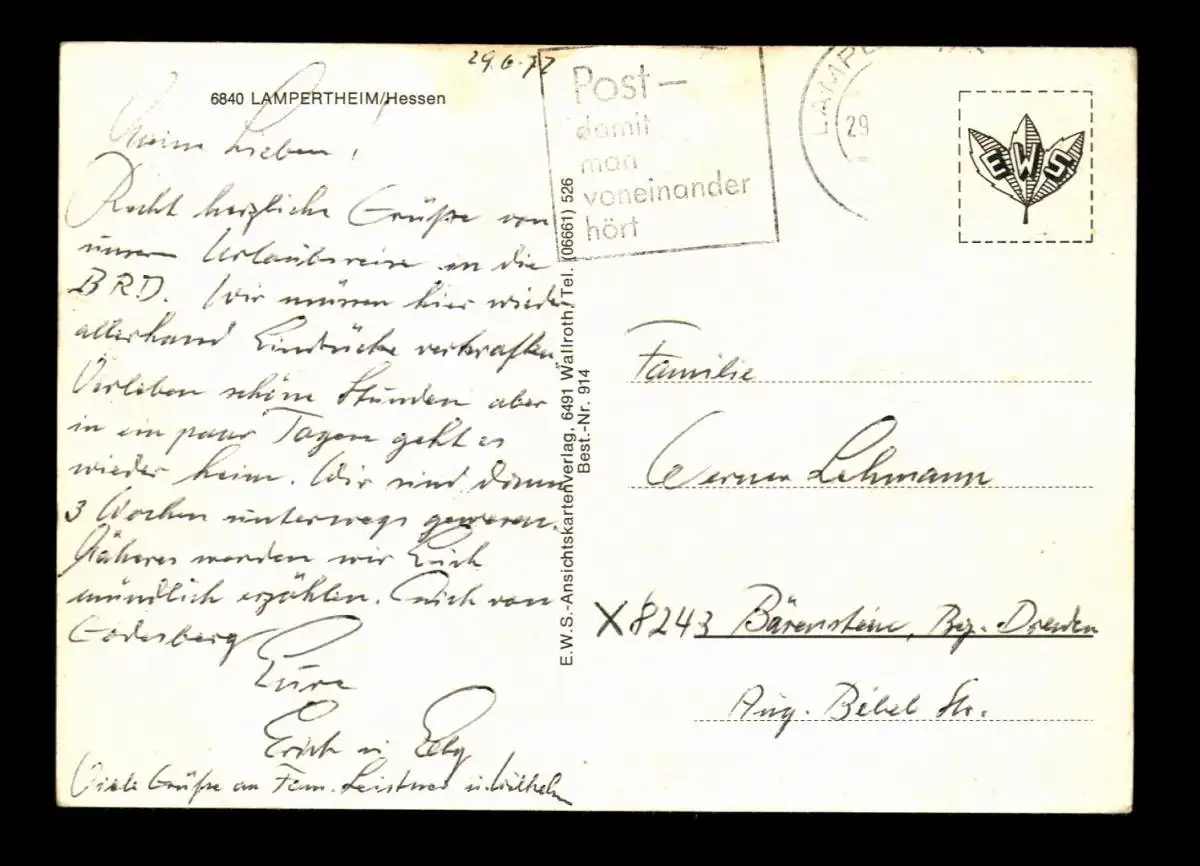 29.6.77
6840 LAMPERTHEIM/Hessen
Meine Lieben!
Recht herzliche Grüße von
unserer Urlaubsreise in die
BRD. Wir müssen hier wieder
allerhand Eindrücke verkraften.
Verleben schöne Stunden aber
in ein paar Tagen geht es
wieder heim. Wir sind dann
3 Wochen unterwegs gewesen.
Näheres werden wir Euch
mündlich erzählen. Auch von
Godesberg
Eure
Erich u.
Viele Grüße an Fam. Leistner u. Wilhelm
E.W.S.-Ansichtskartenverlag, 6491 Wallroth/Tel. (06661) 526
Best.-Nr. 914
Post–
damit
man
voneinander
hört
29
EWS
Familie
Werner Lehmann
X 8243 Bärenstein, Bez. Dresden
Aug. Bebel Str.